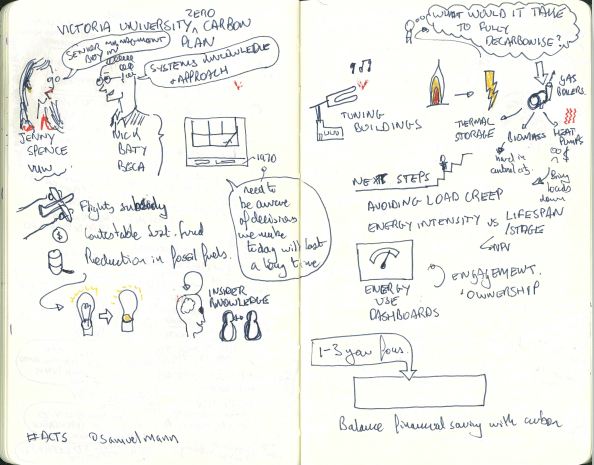 VICTORIA UNIVERSITY ZERO CARBON
PLAN
SENIOR MANAGEMENT
BUY IN
SYSTEMS KNOWLEDGE
+ APPROACH
JENNY
SPENCE
VUW
NICK
BATY
BECA
1970
need to
be aware
of decisions
we make
today will last
a long time
Flights
Contestable fund
Reduction in fossil fuels.
INSIDER
KNOWLEDGE
#ACTS @samuelmann
WHAT WOULD IT TAKE
TO FULLY
DECARBONISE?
TUNING
BUILDINGS
THERMAL
STORAGE
GAS
BOILERS
BIOMASS
hard in
HEAT
PUMPS
Bring
loads
down
NEXT STEPS
AVOIDING LOAD CREEP
ENERGY INTENSITY VS LIFESPAN
/STAGE
NPV
ENERGY
USE
DASHBOARDS
ENGAGEMENT.
+ OWNERSHIP
1-3 year focus.
Balance financial saving with carbon